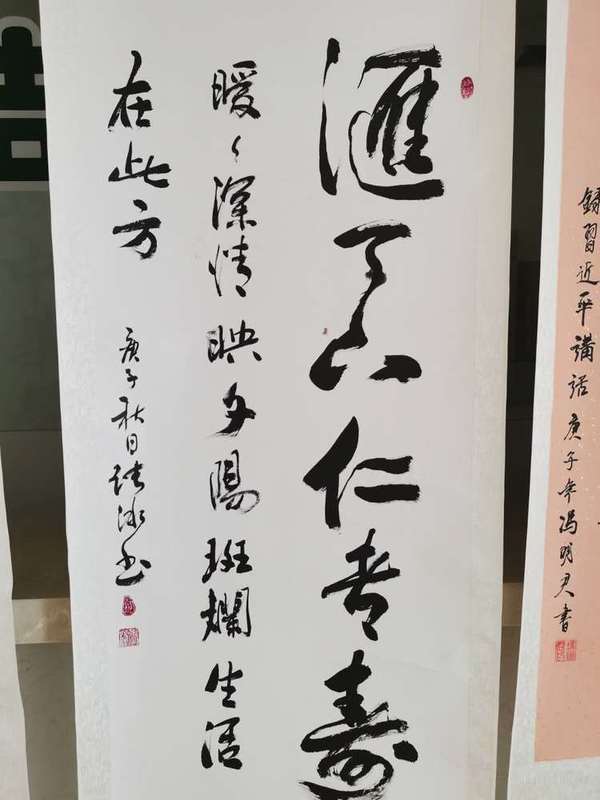 錄習近平講話 庚子年冯明君書
滙 仁者壽
暖々深情映夕陽斑斕生活
在此方
庚子秋日 冰书